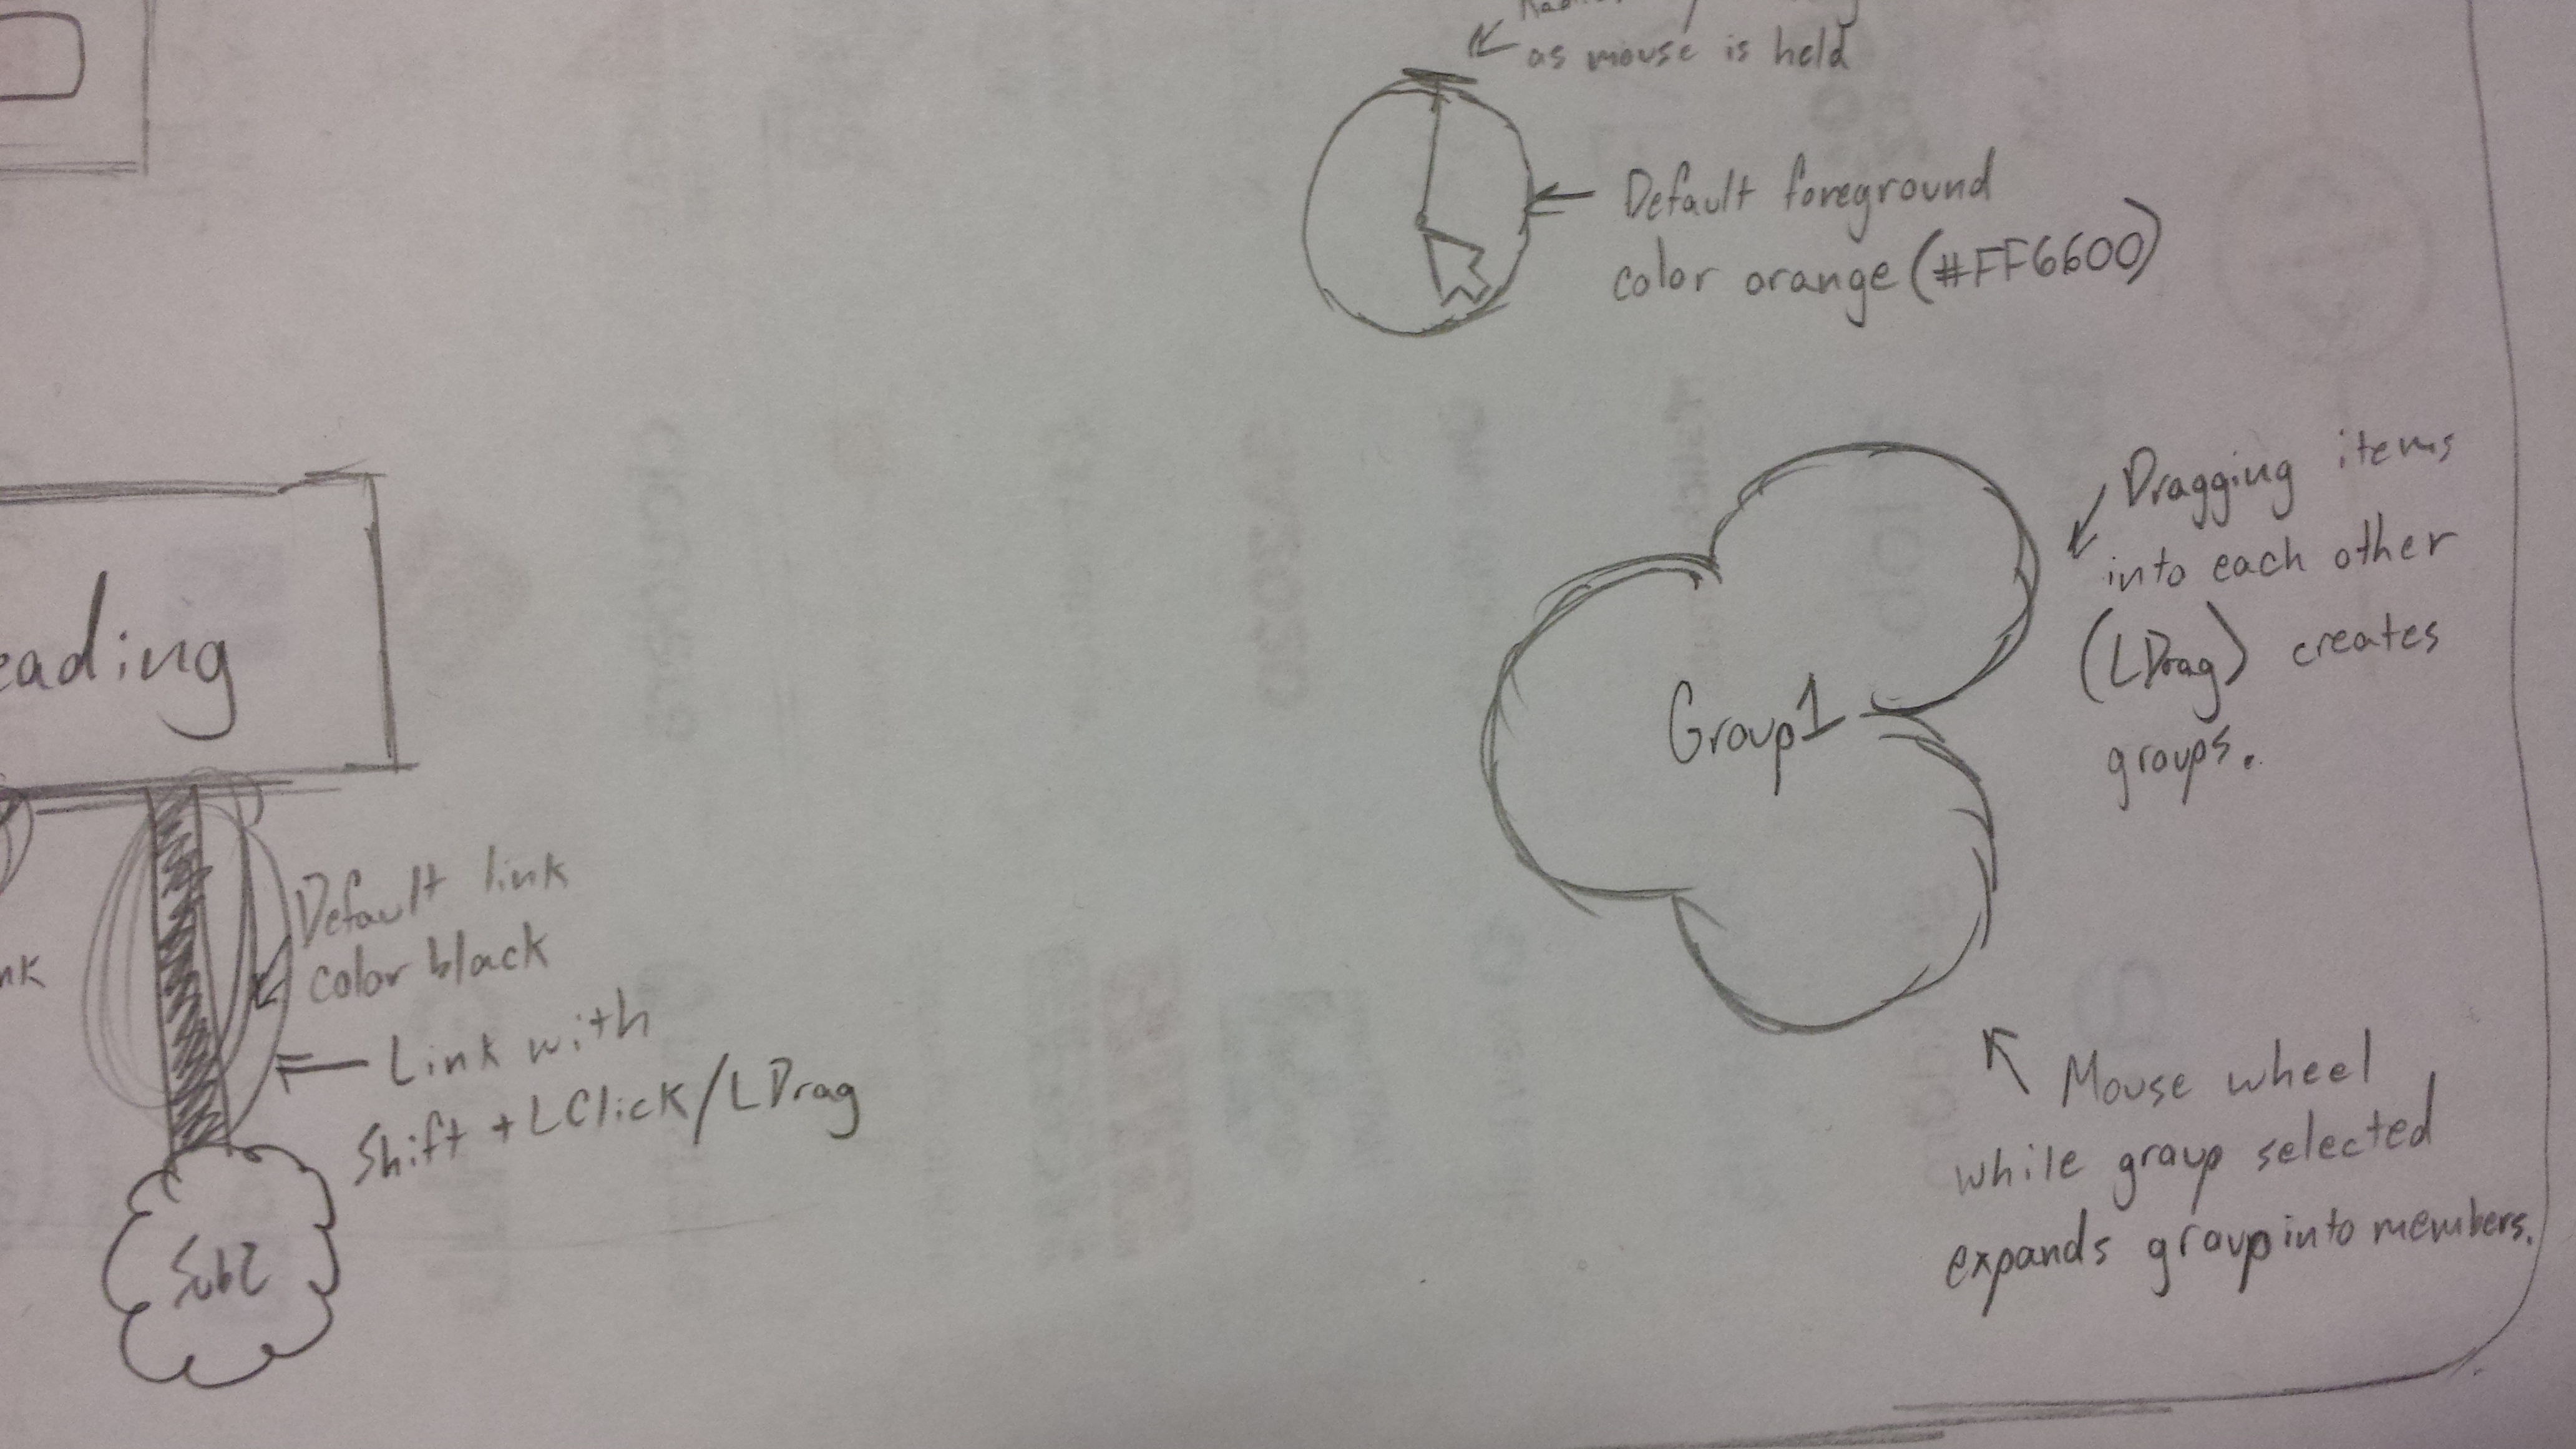 as mouse is held
Default foreground
color orange (#FF6600)
Dragging items
into each other
(LDrag) creates
groups.
eading
Group1
Default link
color black
nk
Link with
Shift + LClick/LDrag
Mouse wheel
while group selected
expands group into members.
Sub2